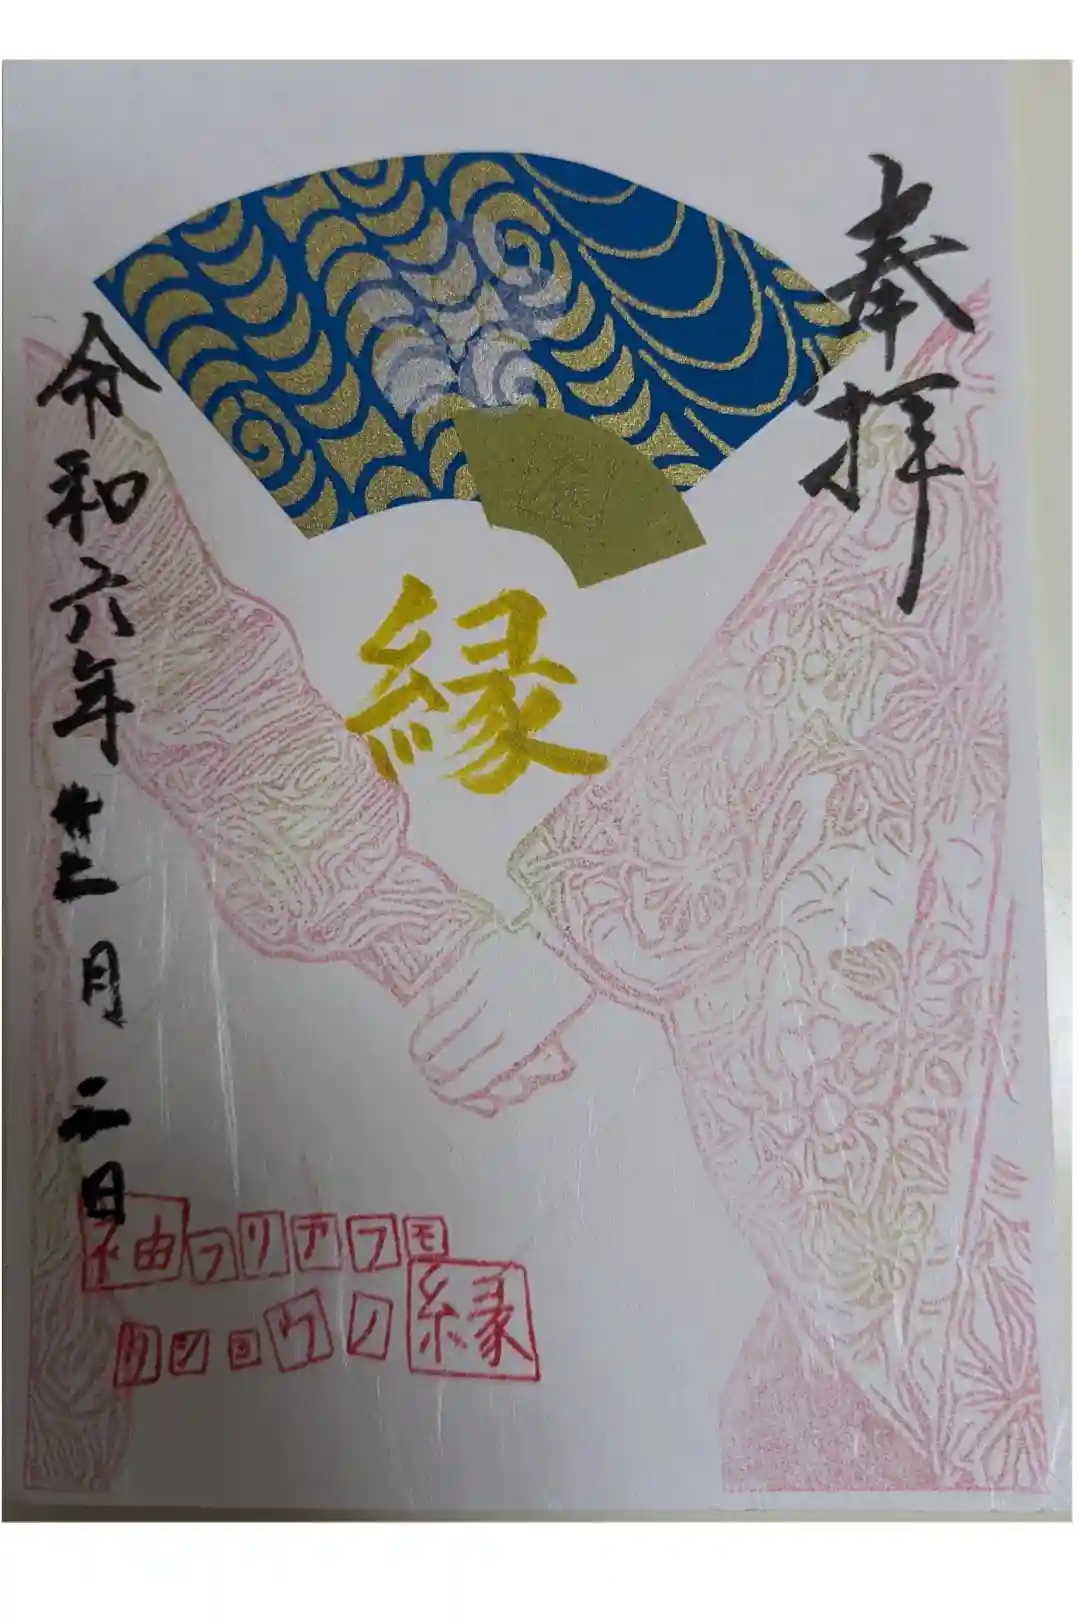 奉拝
縁
令和六年十二月二日
袖フリアフモ
タショウノ縁